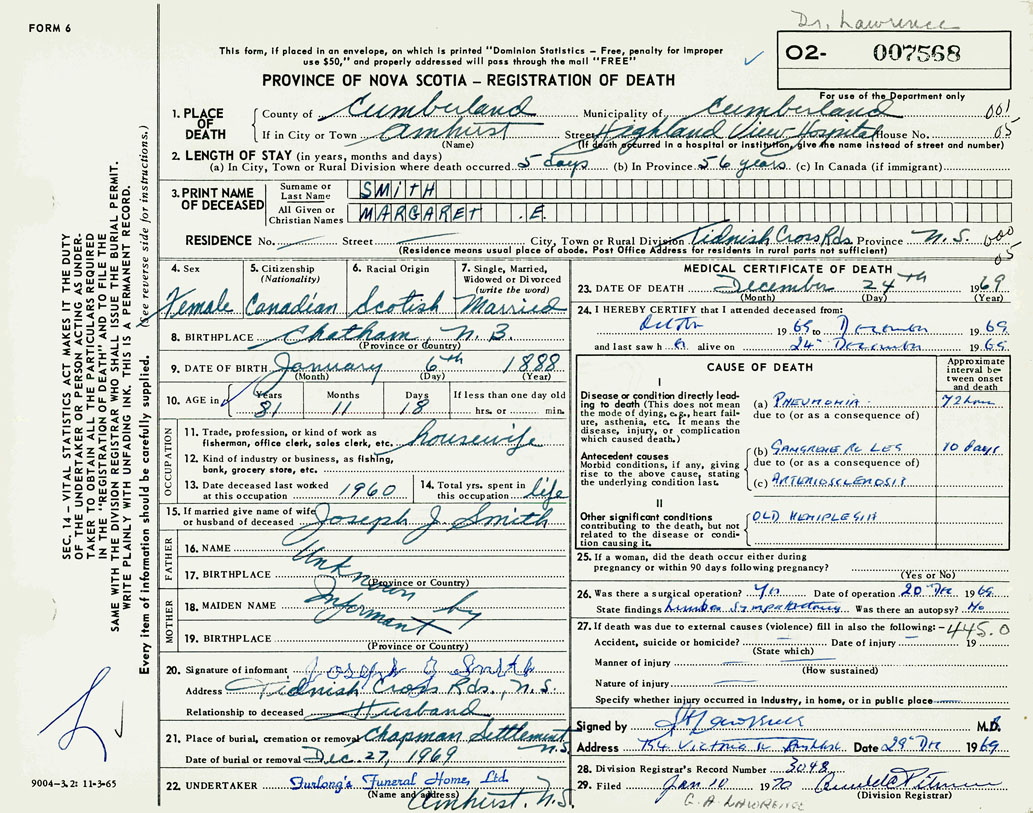 Dr. Lawrence
FORM 6
This form, if placed in an envelope, on which is printed "Dominion Statistics – Free, penalty for improper
use $50," and properly addressed will pass through the mail "FREE"
O2- 007568
PROVINCE OF NOVA SCOTIA – REGISTRATION OF DEATH
For use of the Department only
1. PLACE OF DEATH County of Cumberland Municipality of Cumberland 001
If in City or Town Amhurst Street Highland View Hospital House No. 05
(Name) (If death occurred in a hospital or institution, give the name instead of street and number)
2. LENGTH OF STAY (in years, months and days)
(a) In City, Town or Rural Division where death occurred 5 days (b) In Province 56 years (c) In Canada (if immigrant)
3. PRINT NAME OF DECEASED Surname or Last Name SMITH
All Given or Christian Names MARGARET .E.
RESIDENCE No. Street City, Town or Rural Division Tidnish Cross Rds Province N.S. 000
(Residence means usual place of abode. Post Office Address for residents in rural parts not sufficient) 05
4. Sex 5. Citizenship (Nationality) 6. Racial Origin 7. Single, Married, Widowed or Divorced (write the word)
Female Canadian Scotish Married
8. BIRTHPLACE Chatham, N.B.
(Province or Country)
9. DATE OF BIRTH January 6th 1888
(Month) (Day) (Year)
10. AGE in Years Months Days If less than one day old
81 11 18 hrs. or min.
OCCUPATION
11. Trade, profession, or kind of work as
fisherman, office clerk, sales clerk, etc. housewife
12. Kind of industry or business, as fishing,
bank, grocery store, etc.
13. Date deceased last worked at this occupation 1960 14. Total yrs. spent in this occupation life
15. If married give name of wife
or husband of deceased Joseph J. Smith
FATHER
16. NAME Unknown
17. BIRTHPLACE
(Province or Country)
MOTHER
18. MAIDEN NAME by Informant
19. BIRTHPLACE
(Province or Country)
20. Signature of informant Joseph J Smith
Address Tidnish Cross Rds., N.S.
Relationship to deceased Husband
21. Place of burial, cremation or removal Chapman Settlement N.S.
Date of burial or removal Dec. 27, 1969
22. UNDERTAKER Furlong's Funeral Home, Ltd.
(Name and address) Amhurst, N.S.
MEDICAL CERTIFICATE OF DEATH
23. DATE OF DEATH December 24th 1969
(Month) (Day) (Year)
24. I HEREBY CERTIFY that I attended deceased from:
1969 to December 1969
and last saw h alive on 24 December 1969
CAUSE OF DEATH
Approximate interval between onset and death
I
Disease or condition directly leading to death (This does not mean
the mode of dying, e.g., heart failure, asthenia, etc. It means the
disease, injury, or complication
which caused death.)
(a) PNEUMONIA 72 hours
due to (or as a consequence of)
Antecedent causes
Morbid conditions, if any, giving
rise to the above cause, stating
the underlying condition last.
(b) GANGRENE R. LEG 10 days
due to (or as a consequence of)
(c) ARTERIOSCLEROSIS
II
Other significant conditions
contributing to the death, but not
related to the disease or condition causing it.
OLD HEMIPLEGIA
25. If a woman, did the death occur either during
pregnancy or within 90 days following pregnancy?
(Yes or No)
26. Was there a surgical operation? Yes Date of operation 20 Dec 1969
State findings Lumbar Sympathectomy Was there an autopsy? No
27. If death was due to external causes (violence) fill in also the following: –445.0
Accident, suicide or homicide? Date of injury 19
(State which)
Manner of injury
(How sustained)
Nature of injury
Specify whether injury occurred in Industry, in home, or in public place
Signed by M.D.
Address 154 Victoria St Date 29 Dec 1969
28. Division Registrar's Record Number 3048
29. Filed Jan 10 1970
(Division Registrar)
G. A. LAWRENCE
SEC. 14 – VITAL STATISTICS ACT MAKES IT THE DUTY
OF THE UNDERTAKER OR PERSON ACTING AS UNDER-
TAKER TO OBTAIN ALL THE PARTICULARS REQUIRED
IN THE "REGISTRATION OF DEATH" AND TO FILE THE
SAME WITH THE DIVISION REGISTRAR WHO SHALL ISSUE THE BURIAL PERMIT.
WRITE PLAINLY WITH UNFADING INK. THIS IS A PERMANENT RECORD.
Every item of information should be carefully supplied. (See reverse side for instructions.)
9004–3.2: 11-3-65